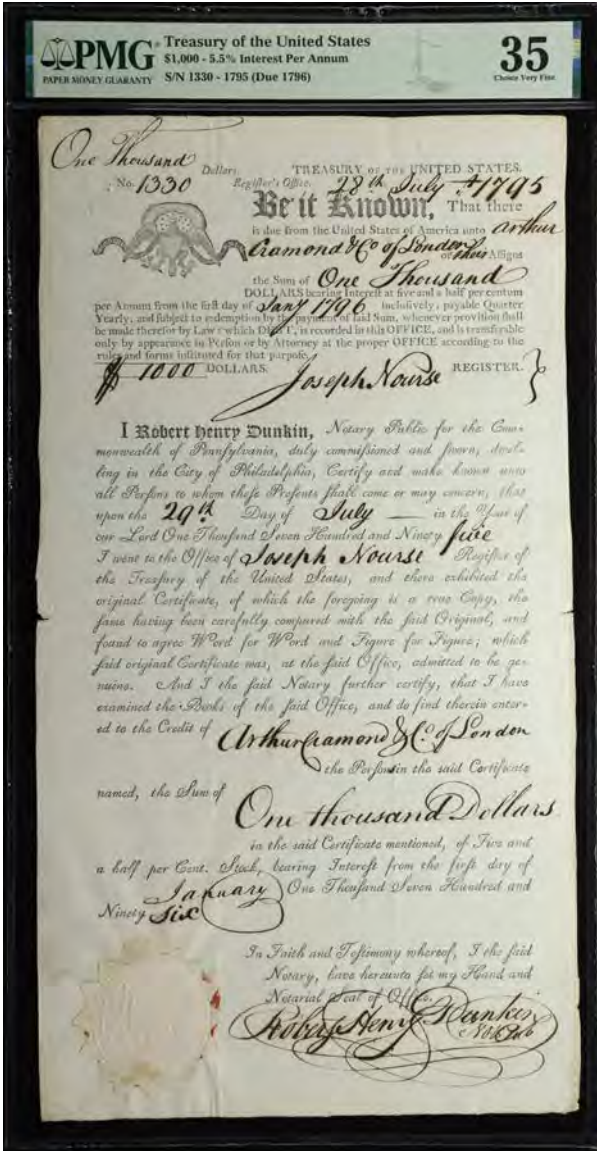 PMG
PAPER MONEY GUARANTY
Treasury of the United States
$1,000 - 5.5% Interest Per Annum
S/N 1330 - 1795 (Due 1796)
35
Choice Very Fine
One Thousand
Dollars. TREASURY OF THE UNITED STATES.
No. 1330 Register's Office. 28th July 1795
Be it Known, That there
is due from the United States of America unto Arthur
Cramond & Co of London or their Assigns
the Sum of One Thousand
DOLLARS bearing Interest at five and a half per centum
per Annum from the first day of Jany 1796 inclusively, payable Quarter
Yearly, and subject to redemption by the payment of said Sum, whenever provision shall
be made therefor by Law: which DEBT, is recorded in this OFFICE, and is transferable
only by appearance in Person or by Attorney at the proper OFFICE according to the
rules and forms instituted for that purpose.
$ 1000 DOLLARS. Joseph Nourse REGISTER.
I Robert Henry Dunkin, Notary Public for the Com-
monwealth of Pennsylvania, duly commissioned and sworn, dwel-
ling in the City of Philadelphia, Certify and make known unto
all Persons to whom these Presents shall come or may concern, that
upon the 29th Day of July in the Year of
our Lord One Thousand Seven Hundred and Ninety five
I went to the Office of Joseph Nourse Register of
the Treasury of the United States, and there exhibited the
original Certificate, of which the foregoing is a true Copy, the
same having been carefully compared with the said Original, and
found to agree Word for Word and Figure for Figure; which
said original Certificate was, at the said Office, admitted to be ge-
nuine. And I the said Notary further certify, that I have
examined the Books of the said Office, and do find therein enter-
ed to the Credit of Arthur Cramond & Co. of London
the Persons in the said Certificate
named, the Sum of
One thousand Dollars
in the said Certificate mentioned, of Five and
a half per Cent. Stock, bearing Interest from the first day of
January One Thousand Seven Hundred and
Ninety Six
In Faith and Testimony whereof, I the said
Notary, have hereunto set my Hand and
Notarial Seal of Office.
Robert Henry Dunkin
Not. Pub